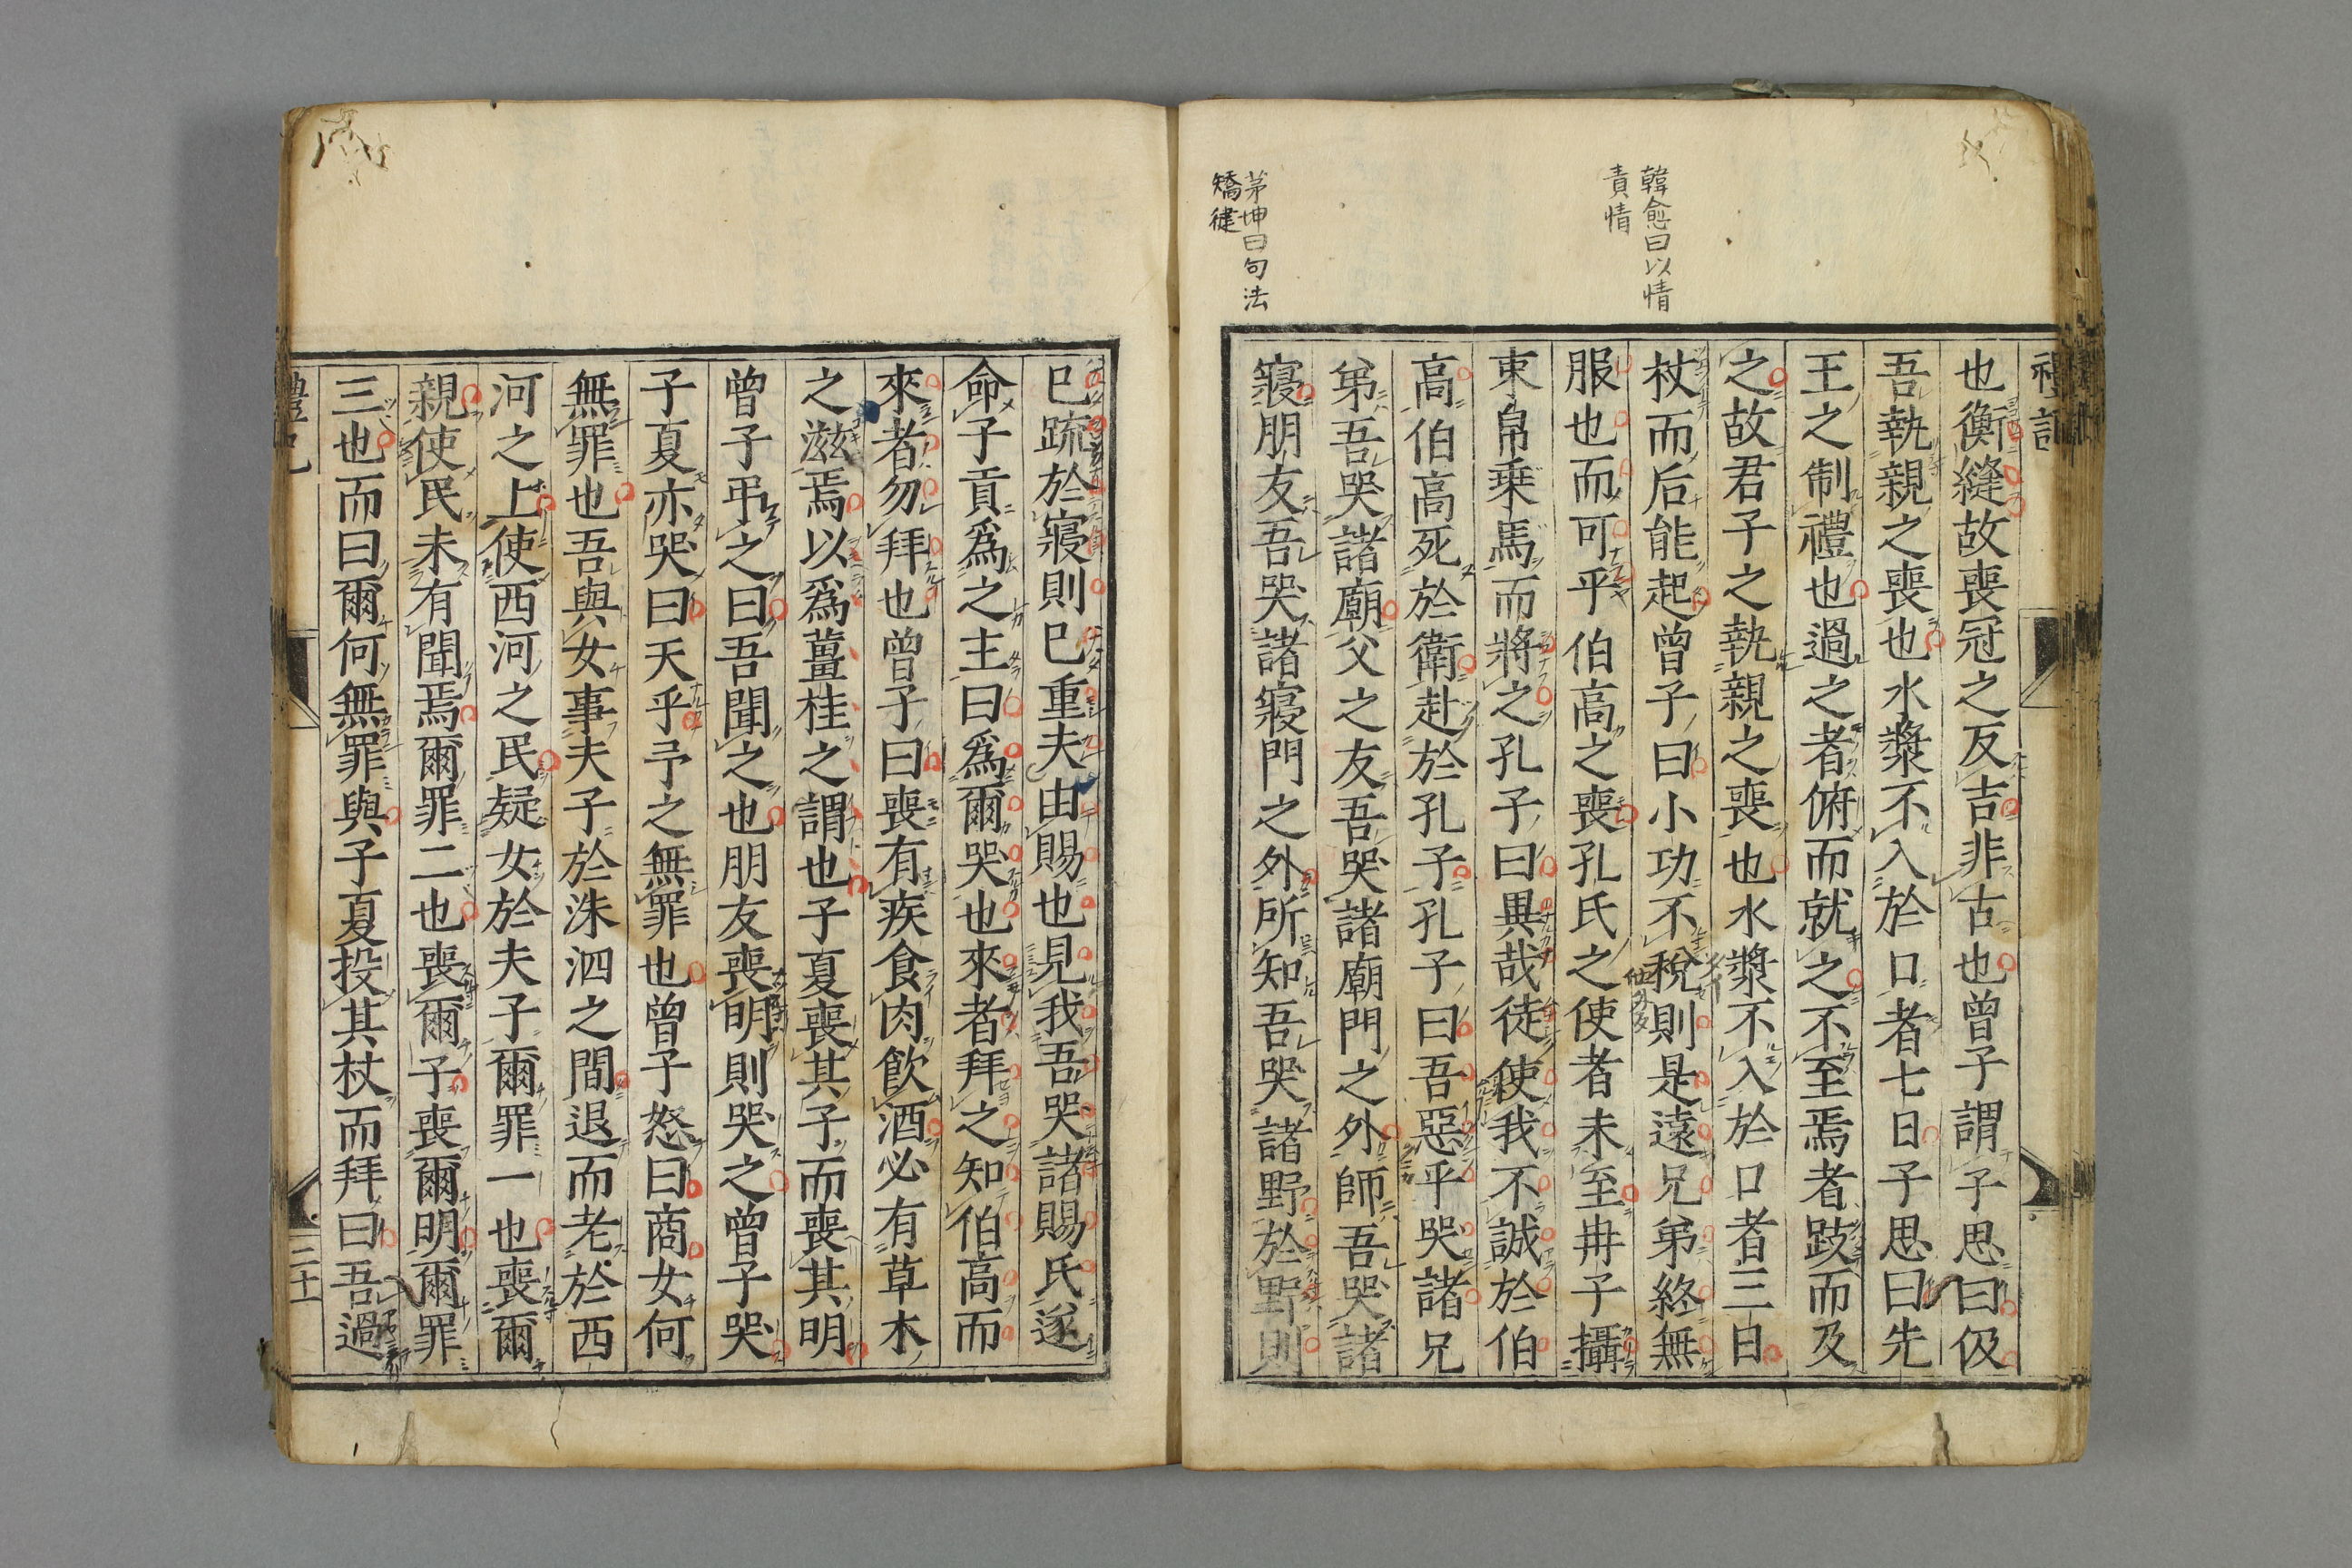 韓愈曰以情
責情
茅坤曰句法
矯健
禮記
也衡縫故喪冠之反吉非古也曾子謂子思曰伋
吾執親之喪也水漿不入於口者七日子思曰先
王之制禮也過之者俯而就之不至焉者跂而及
之故君子之執親之喪也水漿不入於口者三日
杖而后能起曾子曰小功不稅則是遠兄弟終無
服也而可乎伯高之喪孔氏之使者未至冉子攝
束帛乗馬而將之孔子曰異哉徒使我不誠於伯
高伯高死於衛赴於孔子孔子曰吾惡乎哭諸兄
弟吾哭諸廟父之友吾哭諸廟門之外師吾哭諸
寢朋友吾哭諸寢門之外所知吾哭諸野於野則
已疏於寢則已重夫由賜也見我吾哭諸賜氏遂
命子貢爲之主曰爲爾哭也來者拜之知伯高而
來者勿拜也曾子曰喪有疾食肉飲酒必有草木
之滋焉以爲薑桂之謂也子夏喪其子而喪其明
曾子弔之曰吾聞之也朋友喪明則哭之曾子哭
子夏亦哭曰天乎予之無罪也曾子怒曰商女何
無罪也吾與女事夫子於洙泗之間退而老於西
河之上使西河之民疑女於夫子爾罪一也喪爾
親使民未有聞焉爾罪二也喪爾子喪爾明爾罪
三也而曰爾何無罪與子夏投其杖而拜曰吾過
禮記
二十